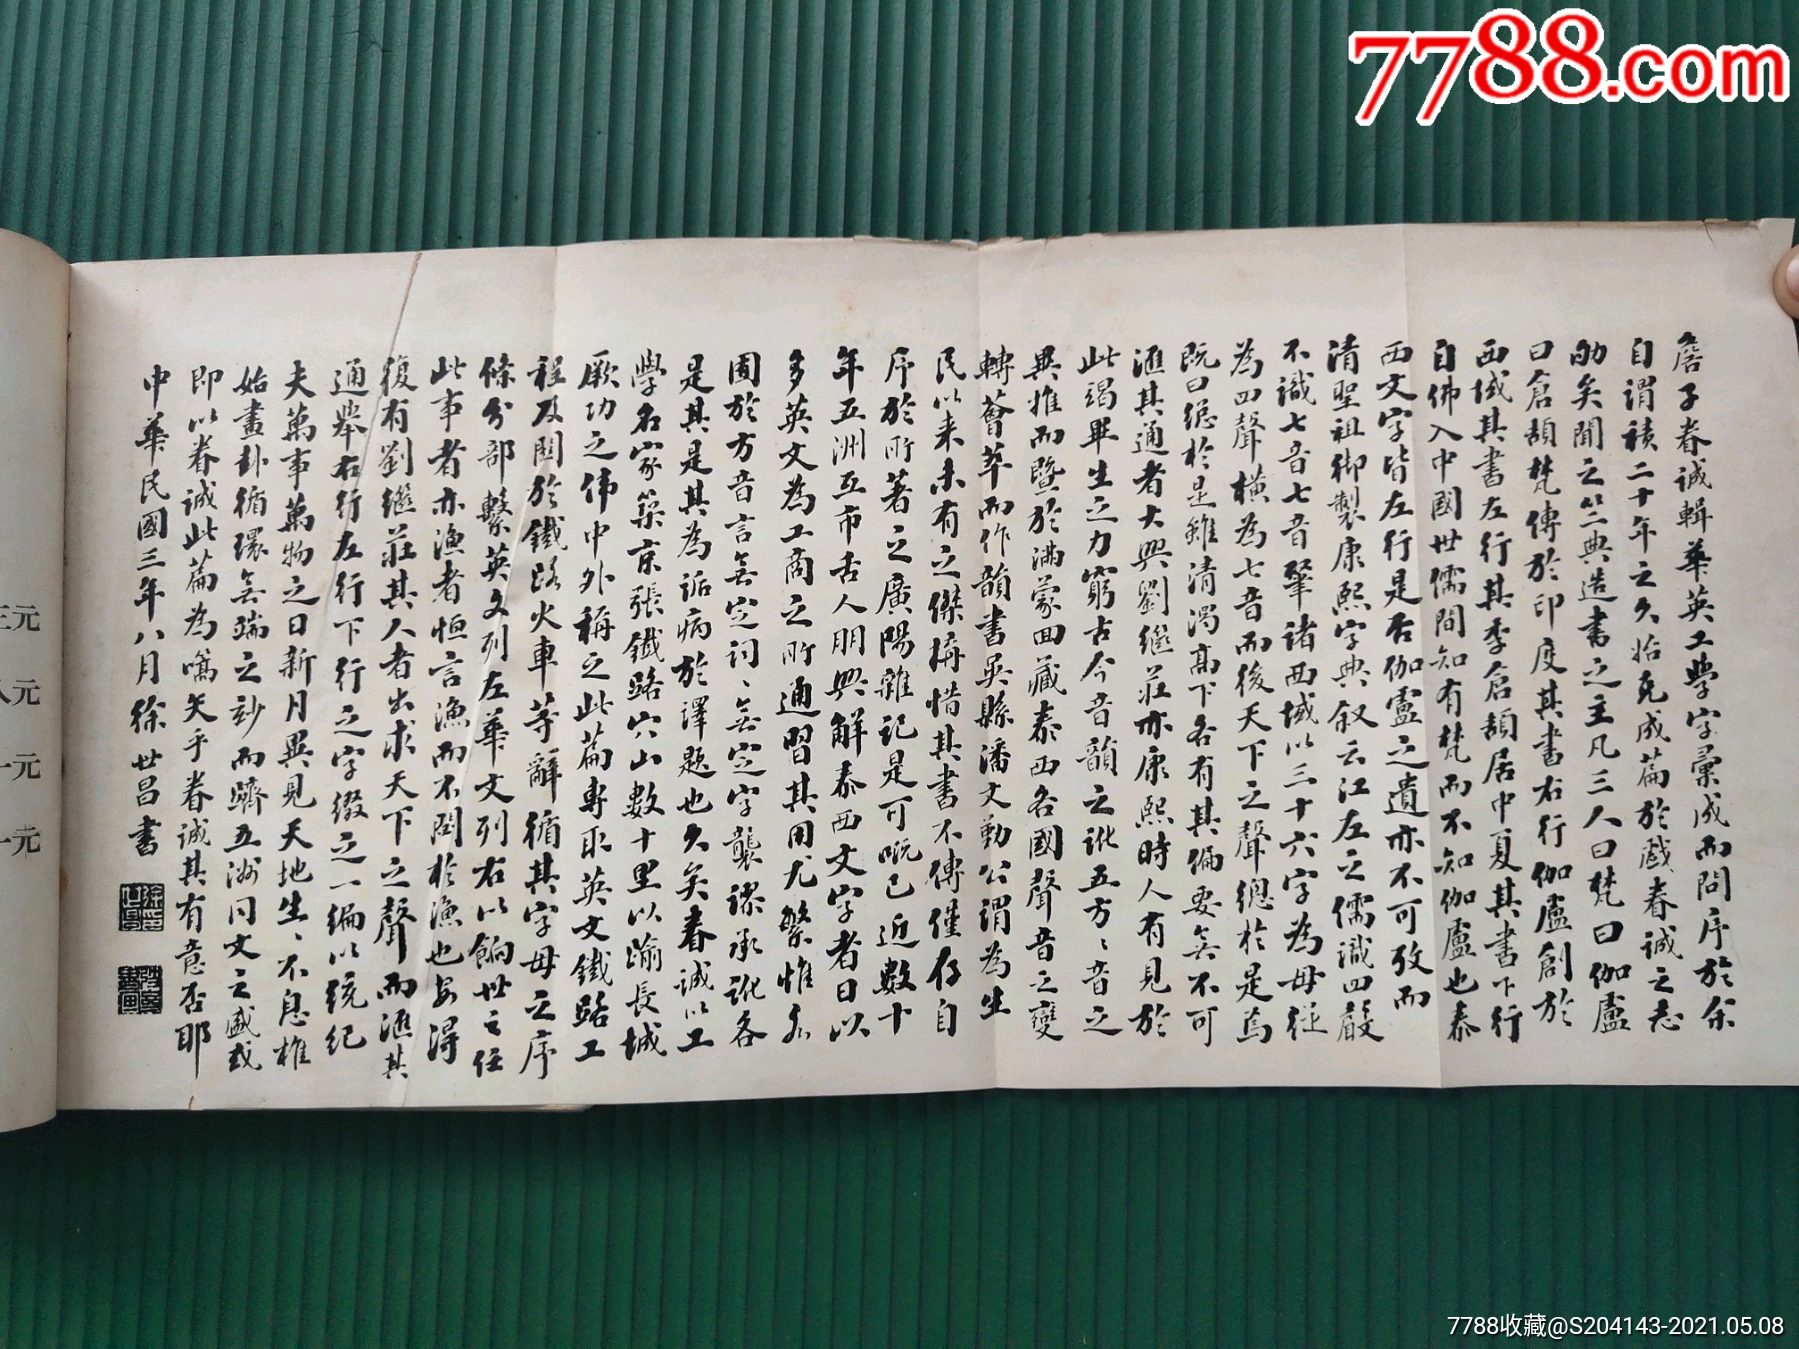 7788.com
詹子眷誠輯華英工學字彙成而問序於余
自謂積二十年之久始克成篇於戲眷誠之志
劬矣聞之竺典造書之主凡三人曰梵曰伽盧
曰倉頡梵傳於印度其書右行伽盧創於
西域其書左行其季倉頡居中夏其書下行
自佛入中國世儒間知有梵而不知伽盧也泰
西文字皆左行是否伽盧之遺亦不可攷而
清聖祖御製康熙字典叙云江左之儒識四聲
不識七音七音肇諸西域以三十六字為母從
為四聲橫為七音而後天下之聲總於是焉
既曰總於是雖清濁高下各有其偏要無不可
滙其通者大興劉繼莊亦康熙時人有見於
此竭畢生之力窮古今音韻之訛五方方音之
異推而暨於滿蒙回藏泰西各國聲音之變
轉薈萃而作韻書吳縣潘文勤公謂為生
民以來未有之傑搆惜其書不傳僅存自
序於所著之廣陽雜記是可嘅已近數十
年五洲互市舌人朋興解泰西文字者日以
多英文為工商之所通習其用尤繁惟各
囿於方音言無定詞詞無定字襲謬承訛各
是其是其為詬病於譯題也久矣眷誠以工
學名家築京張鐵路穴山數十里以踰長城
厥功之偉中外稱之此篇專取英文鐵路工
程及關於鐵路火車等辭循其字母之序
條分部繫英文列左華文列右以餉世之任
此事者亦漁者恒言漁而不閡於漁也安得
復有劉繼莊其人者出求天下之聲而滙其
通舉右行左行下行之字綴之一編以統紀
夫萬事萬物之日新月異見天地生生不息權
始畫卦循環無端之妙而躋五洲同文之盛或
即以眷誠此篇為嚆矢乎眷誠其有意否耶
中華民國三年八月徐世昌書
元
元
元
元
7788收藏@S204143-2021.05.08